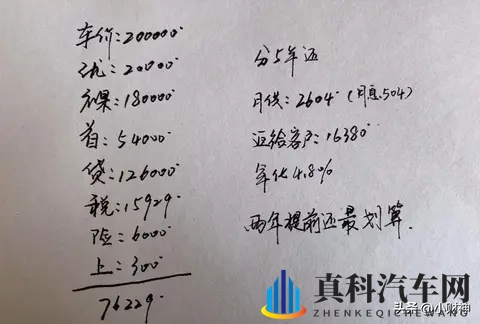 车价:200000
优:20000
裸:180000
首:54000
贷:126000
税:15929
险:6000
上:300
76229
分5年还
月供:2604(月息504)
返给客户:16380
年化4.8%
两年提前还最划算.
真科汽车网
ZHENKEQICHEWANG